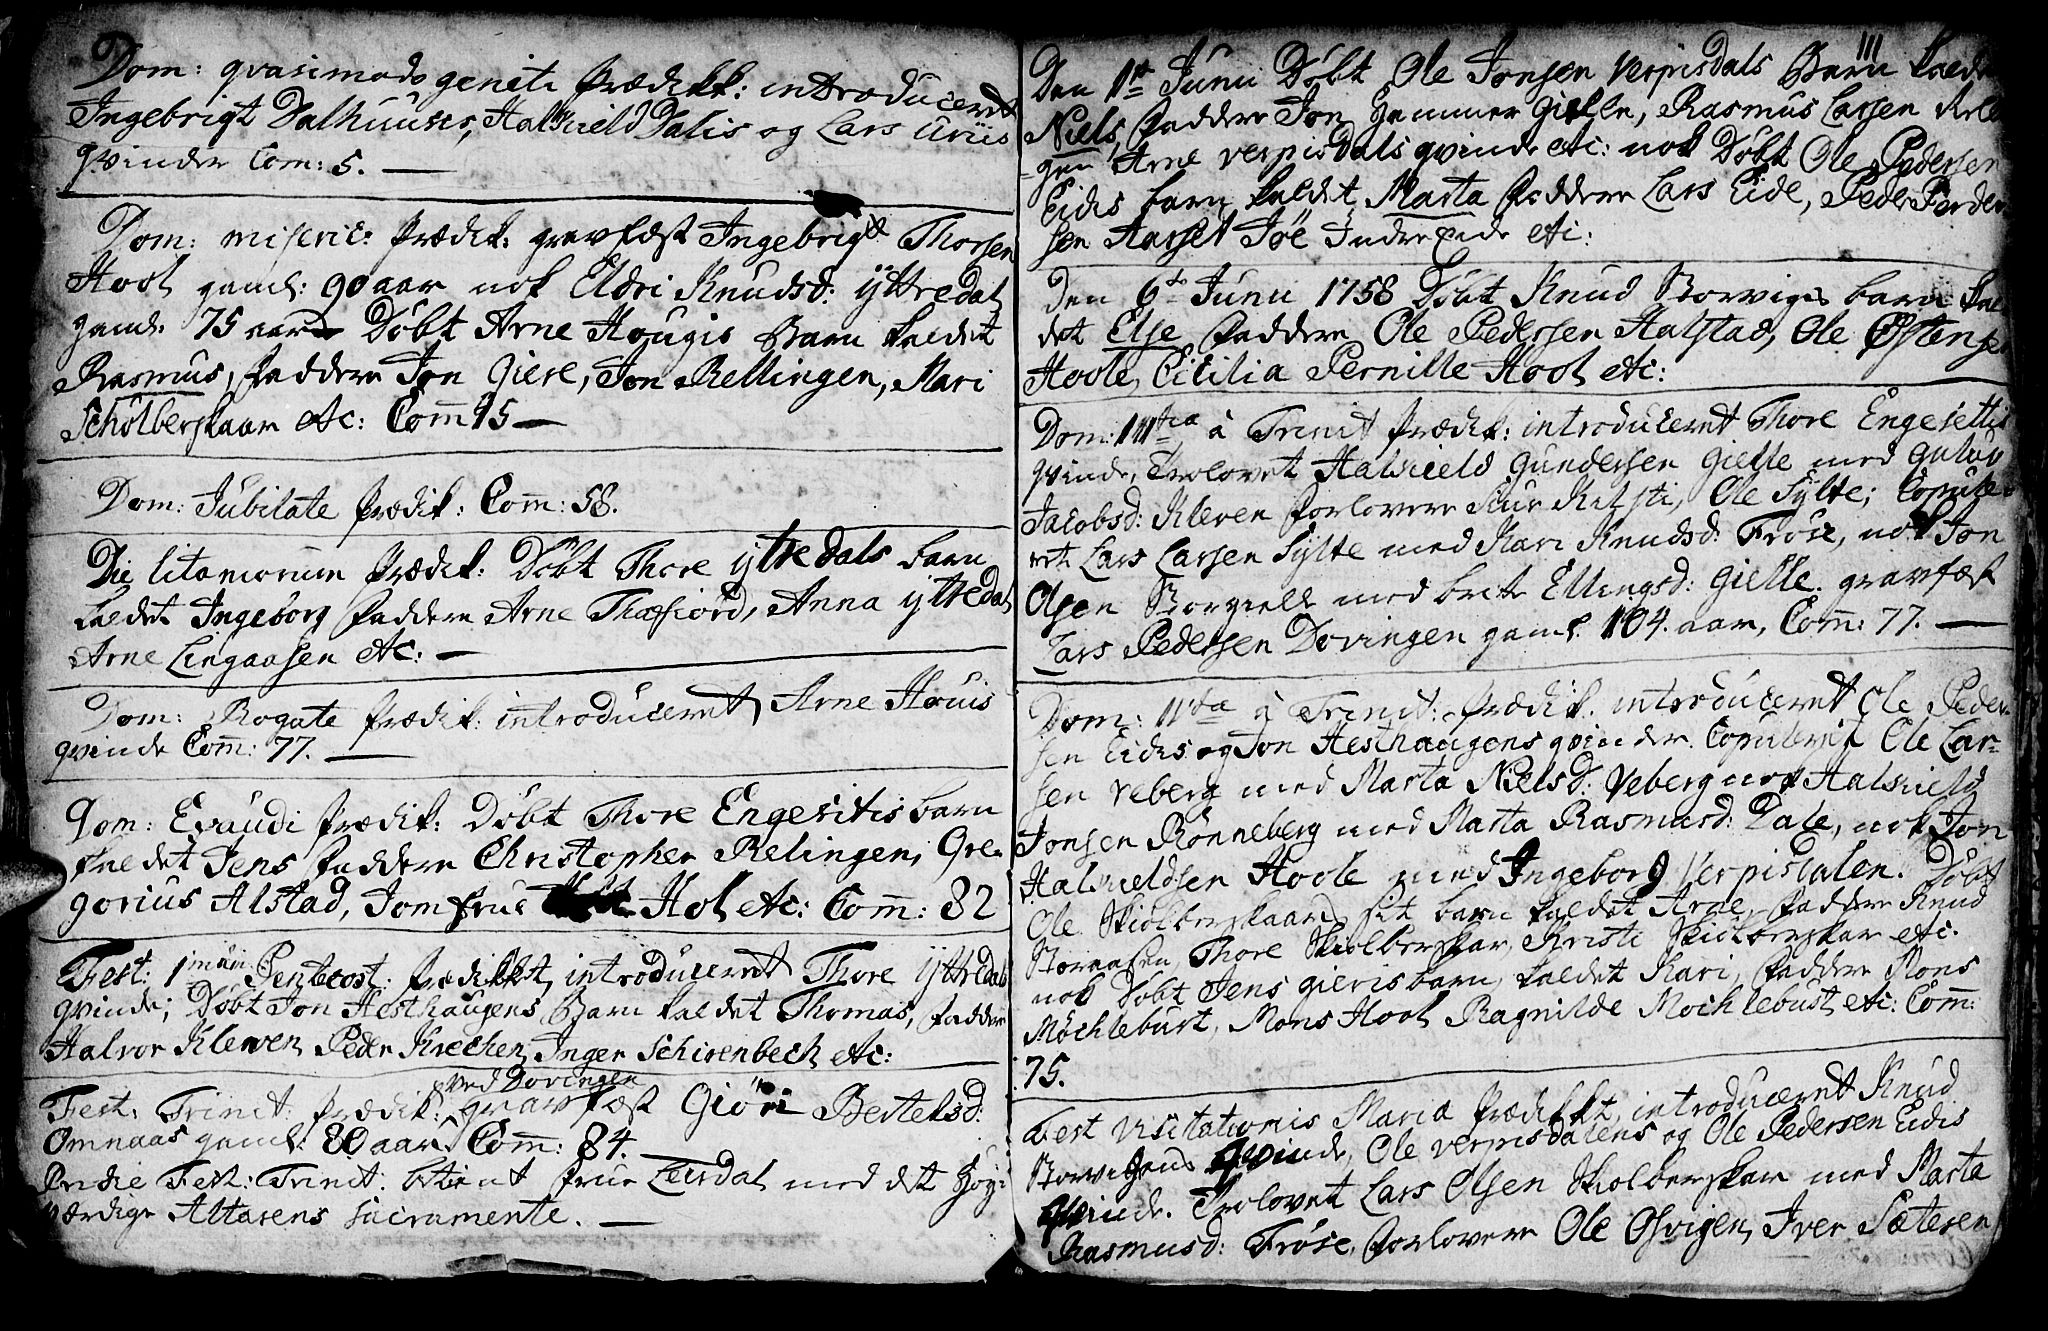 Dom: qvasimodo geniti prædikk: introduceret
Ingebrigt Dalhuuses, Halkield Dalis og Lars Uriis
qvinder Com: 5. —
Dom: miseric: prædik: gravfæst Ingebrigt Thorsen
Hool gaml: 90 aar nok Eldri Knudsd: ÿttredal
gaml: 75 aar Døbt Arne Hougis Barn kaldet
Rasmus, faddere Jon Giere, Jon Rellingen, Mari
Schölberskaar etc: Com̄ 95 —
Dom: Jubilate prædik: Com̄: 58.
Die litaniorum prædik: Døbt Thore ÿtredals barn
kaldet Ingeborg faddere Arne Thafiord, Anna ÿttredal
Arne Lingaasen etc: —
Dom: Rogate prædik: introduceret Arne Houis
qvinde Com̄: 77. —
Dom: Exaudi prædik: Døbt Thore Engesettis barn
kaldet Jens faddere Christopher Relingen, Gre-
gorius Alstad, Jomfrue Hol etc: Com̄: 82
Fest: 1mum Pentecost: prædikkt, introduceret Thore ÿttredals
qvinde; Døbt Jon Hesthaugens Barn kaldet Thomas, faddere
Halvor Kleven Peder Krechen Inger Schirenbech etc:
ved Dovingen
Fest: Trinit: prædik: gravfæst Giöri Bertelsd:
Omnaas gaml: 80 aar Com̄: 84. —
Pridie Fest: Trinit: betient frue Leirdal med det høy-
værdige Altarens sacramente. —
111
Den 1te Junii Døbt Ole Jonsen Verpisdals Barn kaldet
Niels, faddere Jon Gammer Gielle, Rasmus Larsen Rel-
gen Arne Verpisdals qvinde etc: nok Døbt Ole Pedersen
Eidis barn kaldet Marta faddere Lars Eide, Peder Peder-
sen Aarset Joe Indreeide etc:
Den 6te Junii 1758 Døbt Knud Storvigis barn kal-
det Else faddere Ole Pedersen Halstad, Ole Østensen
Hoole, Cicilia Pernille Hool etc:
Dom: IIItia à Trinit prædik: introduceret Thore Engesettis
qvinde, Trolovet Halkield Gundersen Gielle med Gulov
Jacobsd: Kleven forlovere Siur Relsti, Ole Sylte; Copule-
ret Lars Larsen Sylte med Kari Knudsd: Frøse, nok Jon
Olsen Borgield med brite Ellingsd: Gielle. gravfæst
Lars Pedersen Dovingen gaml: 104. aar, Com̄: 77. —
Dom: IIIIta à Trinit: prædik. introduceret Ole Peder-
sen Eidis og Jon Hesthaugens qvinder. Copulerit Ole Lar-
sen Veberg med Marta Nielsd: Veberg nok Halkield
Jonsen Rönneberg med Marta Rasmusd: Dale, nok Jon
Halkieldsen Hoole med Ingeborg Verpisdalen. Døbt
Ole Skiolberskaar sit barn kaldet Arne, faddere Knud
Storaasen Thore Skiolberskar, Kristi Skiolberskar etc.
nok Døbt Jens Gieris barn kaldet Kari, faddere Mons
Möchlebust, Mons Hool Ragnilde Mochlebust etc: Com̄:
75.
Fest Visitationis Maria prædikkt, introduceret Knud
Storvigens qvinde, Ole Verpisdalens og Ole Pedersen Eidis
qvinde. Trolovet Lars Olsen Skolberskar med Marta
Rasmusd: Frøse, forlovere Ole Osvigen, Iver Sætesen